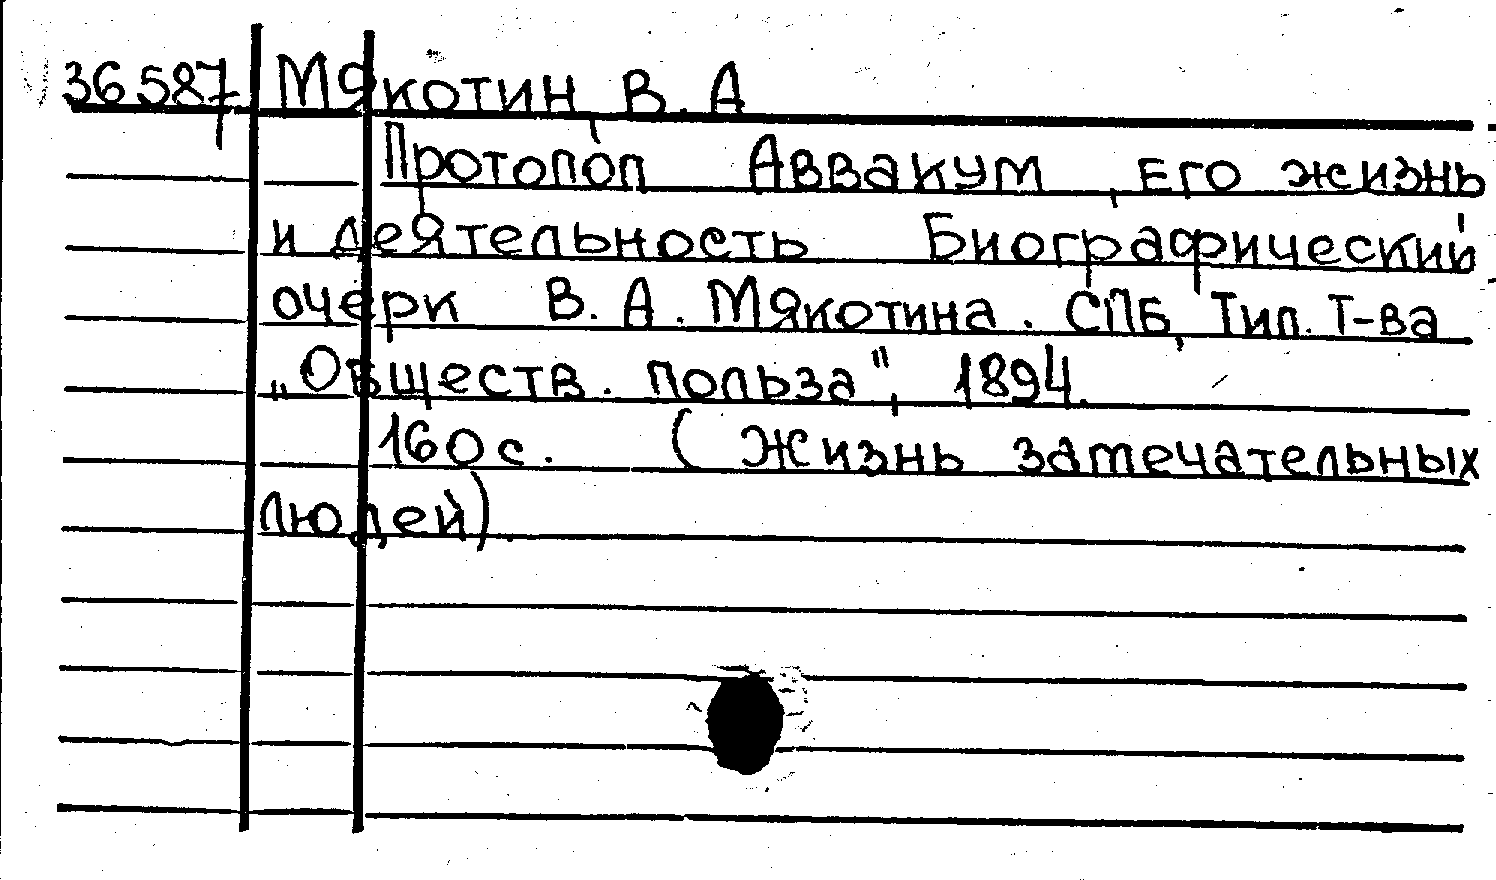 36587 Мякотин, В. А
Протопоп Аввакум, его жизнь
и деятельность Биографический
очерк В. А. Мякотина. СПБ, Тип. Т-ва
„Обществ. польза", 1894.
160 с. (Жизнь замечательных
людей).